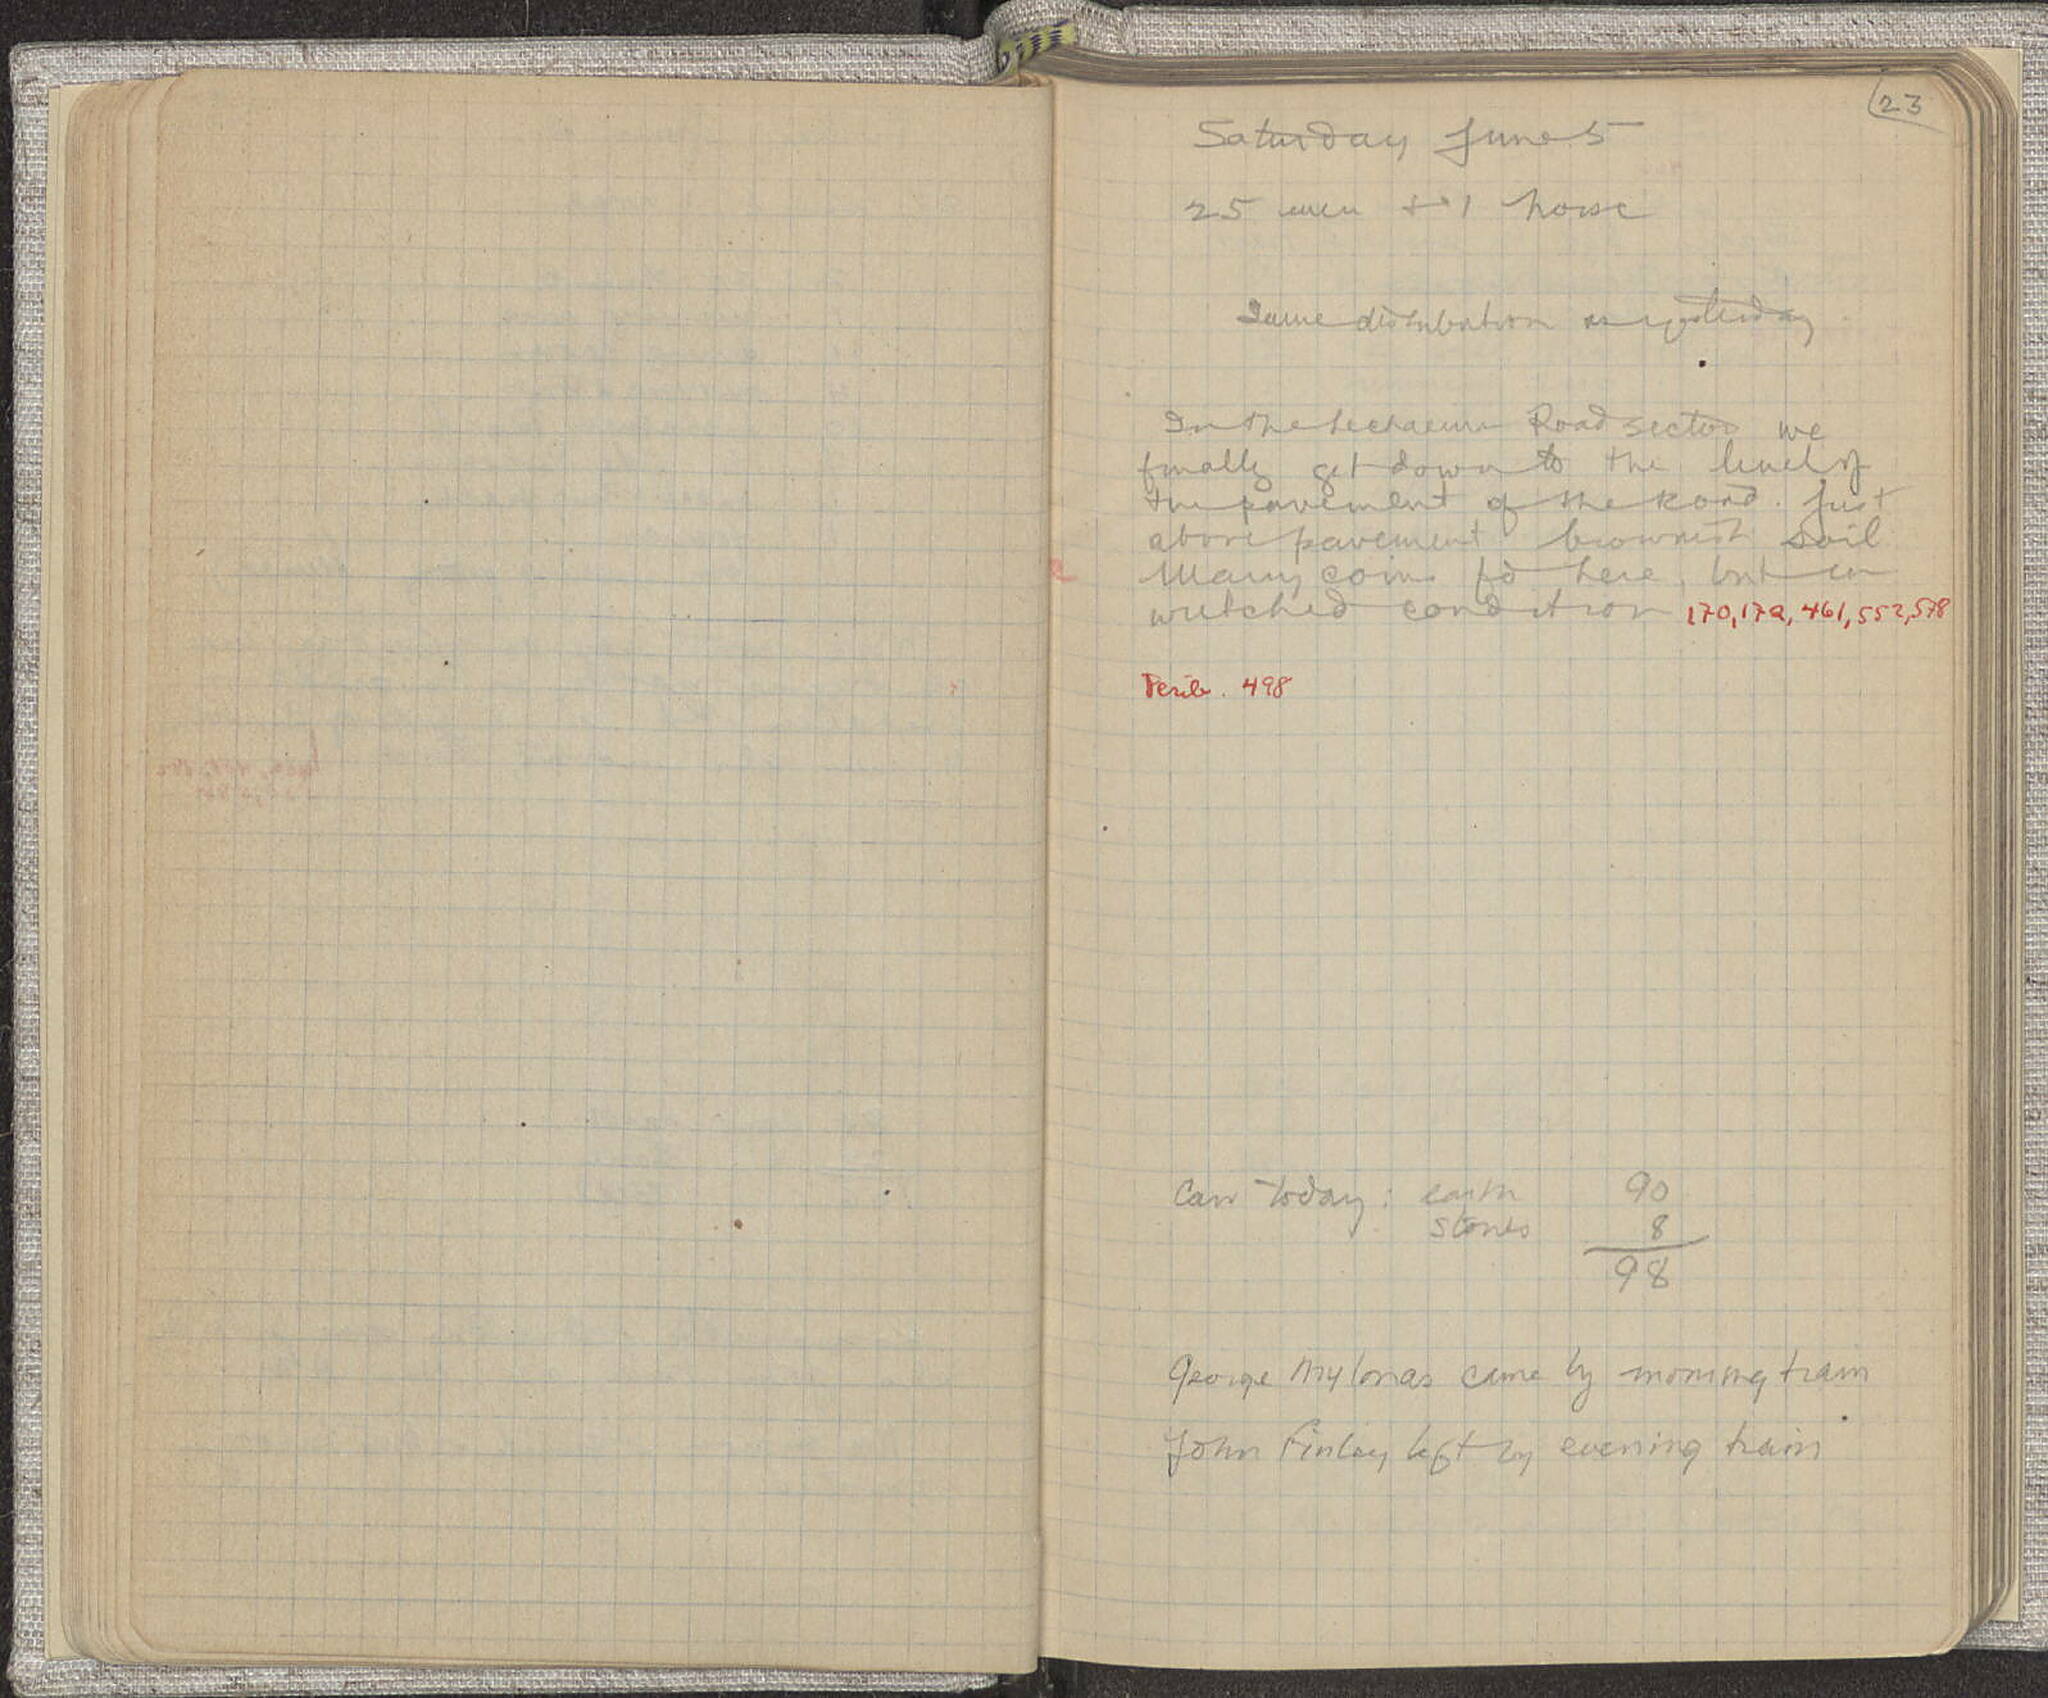 23
Saturday June 5
25 men + 1 horse
Same distribution as yesterday.
In the Lechaeum Road sector we
finally get down to the level of
the pavement of the Road. Just
above pavement brownish soil
Many coins fd here, but in
wretched condition 170, 172, 461, 552, 578
Perib. 498
Cars today: earth 90
stones 8
98
George Mylonas came by morning train
John Finlay left by evening train